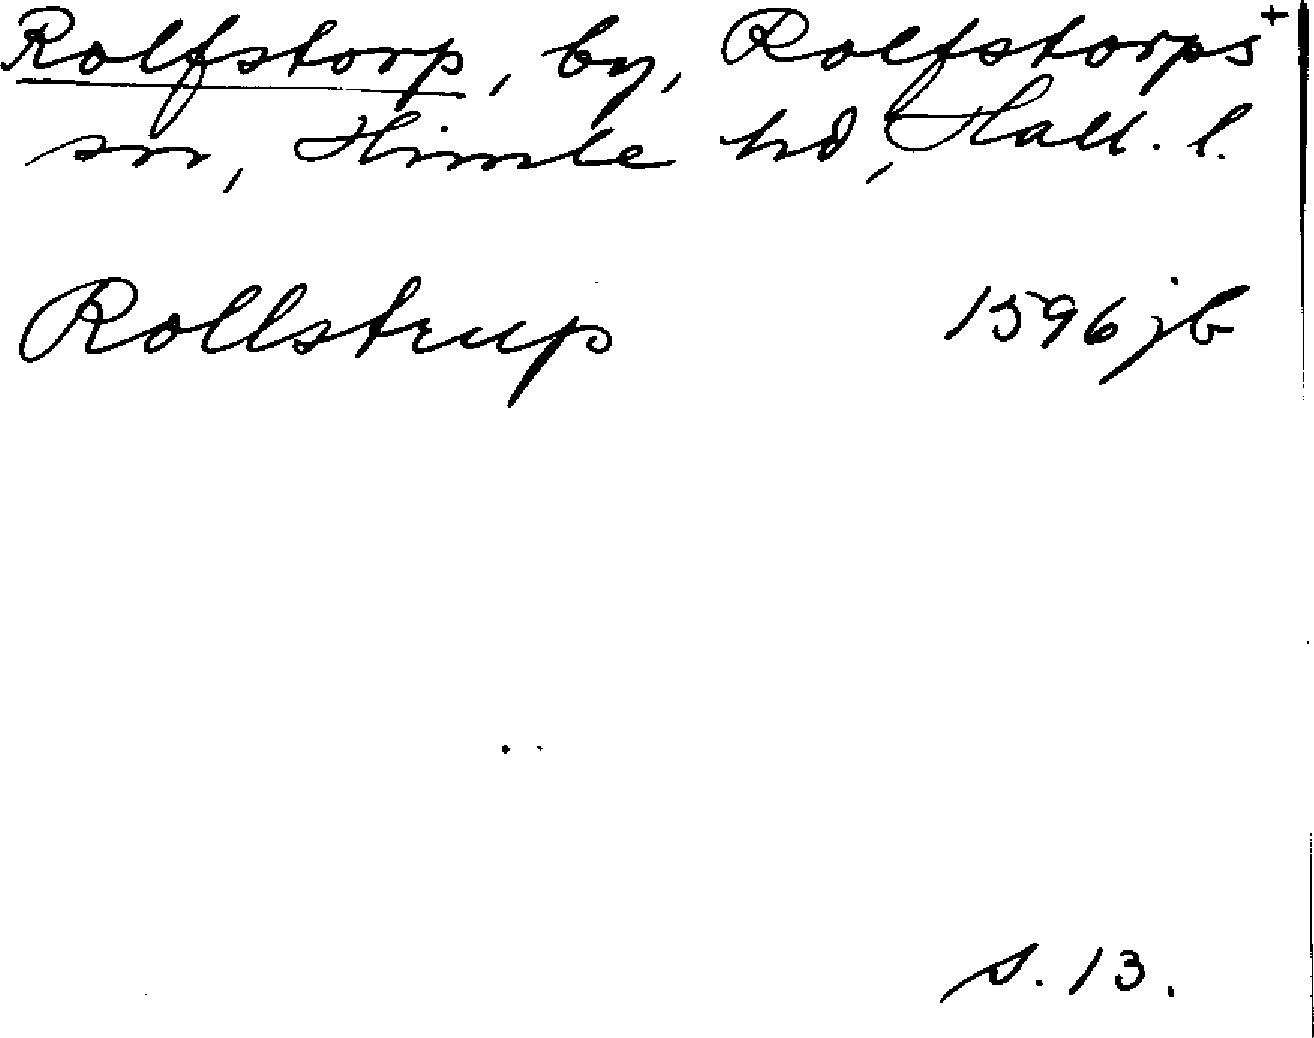 Rolfstorp, by, Rolfstorps +
sn, Himle hd, Hall. l.
Rollstrup 1596 jb
s. 13.